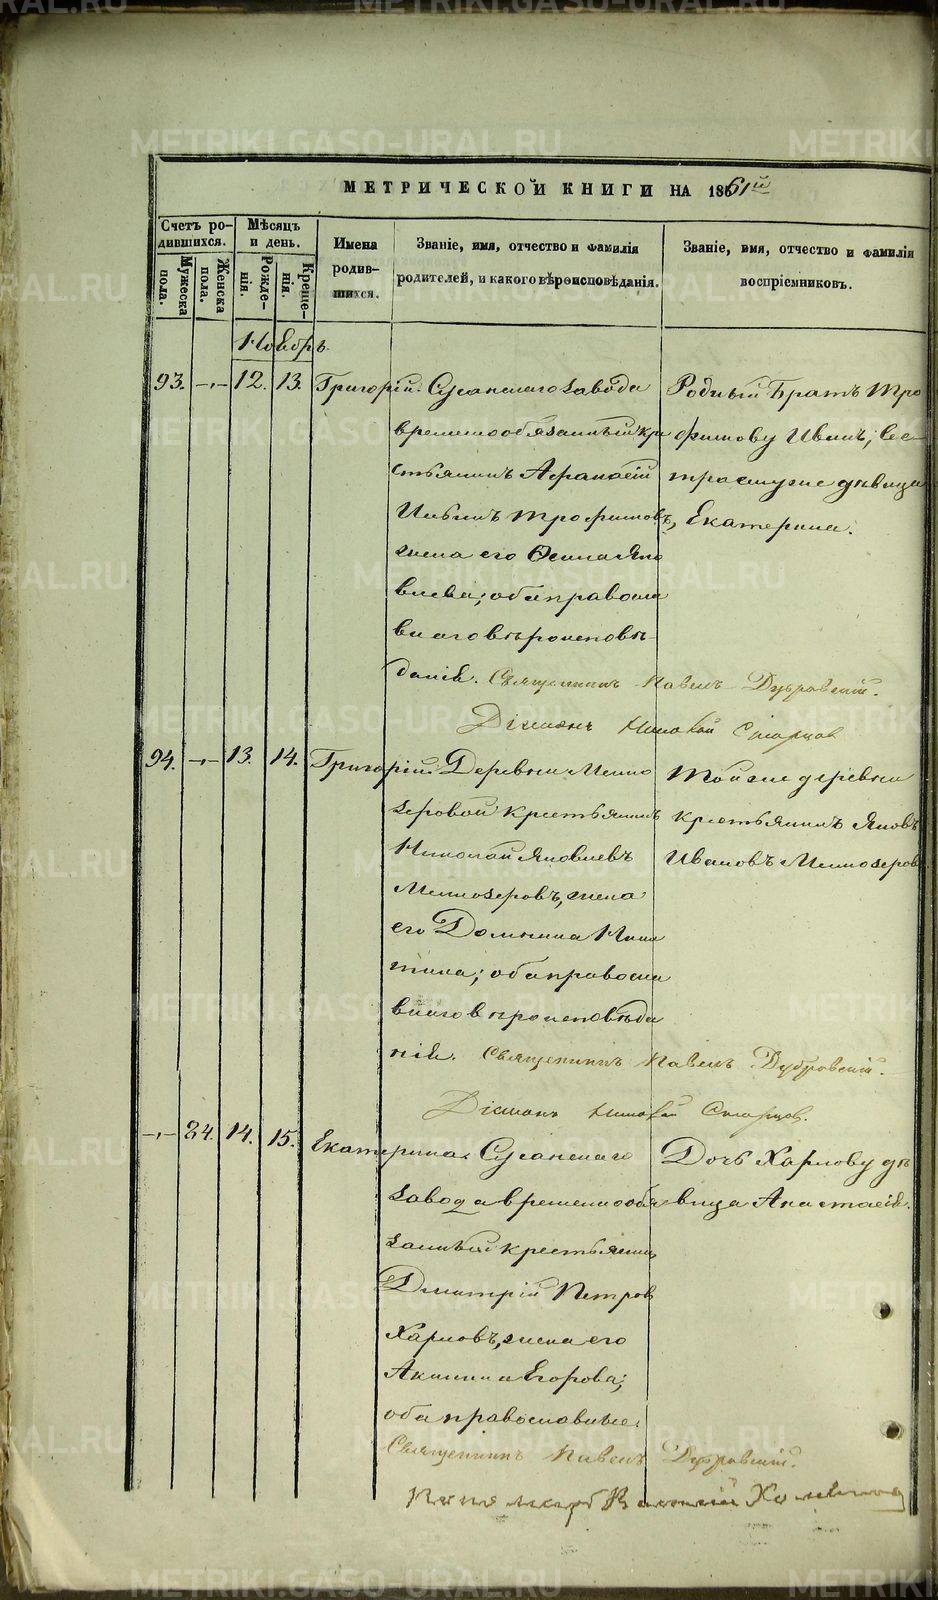 МЕТРИЧЕСКОЙ КНИГИ НА 1861й
Счетъ ро-
дившихся.
Мужеска
пола.
Женска
пола.
Мѣсяцъ
и день.
Рожде-
нія.
Креще-
нія.
Имена
родив-
шихся.
Званіе, имя, отчество и фамилія
родителей, и какого вѣроисповѣданія.
Званіе, имя, отчество и фамилія
воспріемниковъ.
Ноябрь.
93. -„- 12. 13. Григорій. Сусанскаго завода
временнообязанный кре
стьянинъ Афанасій
Ильинъ Трофимовъ,
жена его Ѳекла Яко
влева; оба православ
наго вѣроисповѣ-
данія. Священникъ Павелъ Дубровскій.
Діаконъ Николай Старцов
Родный братъ Тро
фимову Иванъ, Сес-
тра еиуже дѣвица
Екатерина.
94. -„- 13. 14. Григорій. Деревни Мелко
зеровой крестьянинъ
Николай Яковлевъ
Мелкозеровъ, жена
его Домника Ники
тина; оба православ
наго вѣроисповѣда
нія. Священникъ Павелъ Дубровскій.
Діаконъ Николай Старцов.
Той же деревни
крестьянинъ Яковъ
Ивановъ Мелкозеров
-„- 84. 14. 15. Екатерина. Сусанскаго
завода временнообя
занный крестьянин
Дмитрій Петров
Харловъ, жена его
Акилина Егорова;
оба православные.
Священникъ Павелъ Дубровскій.
Дочь Харлову дѣ
вица Анастасія.